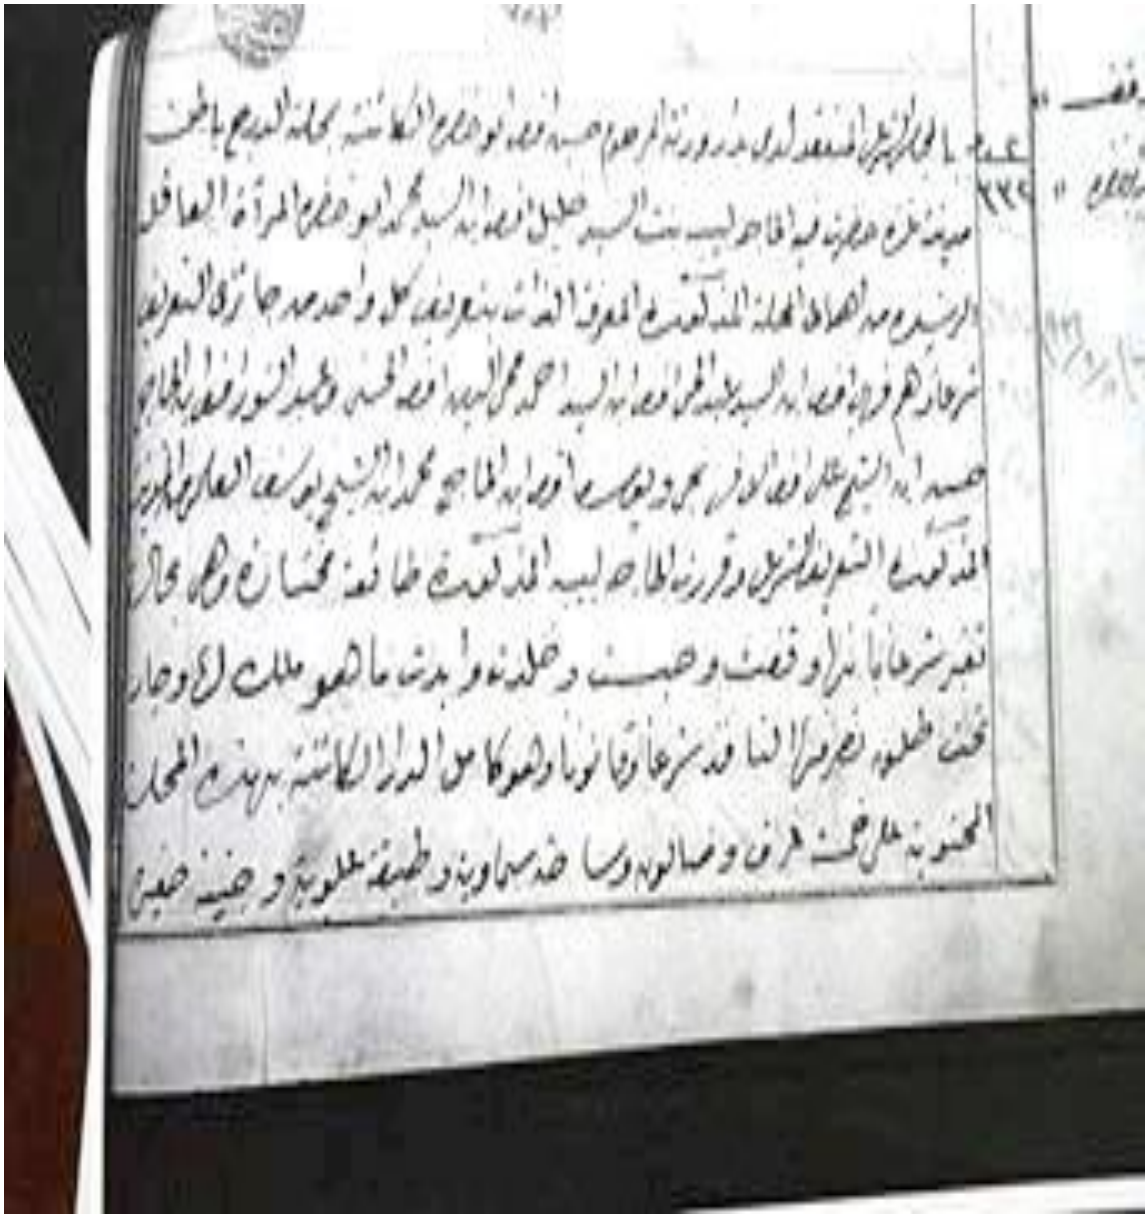 وقف
بالمجلس الشرعي المنعقد لدى دار ورثة المرحوم حسين افندي ابو خضره الكائنة بمحلة الدرج باطن
مدينة غزه حضرت فيه الحاجه لبيبه بنت السيد خليل افندي ابن السيد محمد ابو خضره المرأة العاقلة
الرشيده من اهالي المحلة المذكورة المعرفة الذات بتعريف كل واحد من جائزي التعريف
شرعا وهم افندي ابن السيد عبدالحي افندي ابن السيد احمد محي الدين افندي الحسيني وعبد النور افندي ابن الحاج
حسين ابن الشيخ علي افندي ويوسف افندي ابن الحاج محمد ابن الشيخ يوسف العلمي
المذكورة التعريف الشرعي وقررت الحاجه لبيبه المذكورة طائعة مختارة وهي بحال
تعتبر شرعا بانها وقفت وحبست وخلدت وابدت ما هو ملك لها وجار
تحت طلق تصرفها النافذ شرعا وقانونا وهو كامل الدار الكائنة بهذه المحلة
المحتوية على خمسة غرف وصالون وساحة سماوية وطبقة علوية وجنينة صغيرة